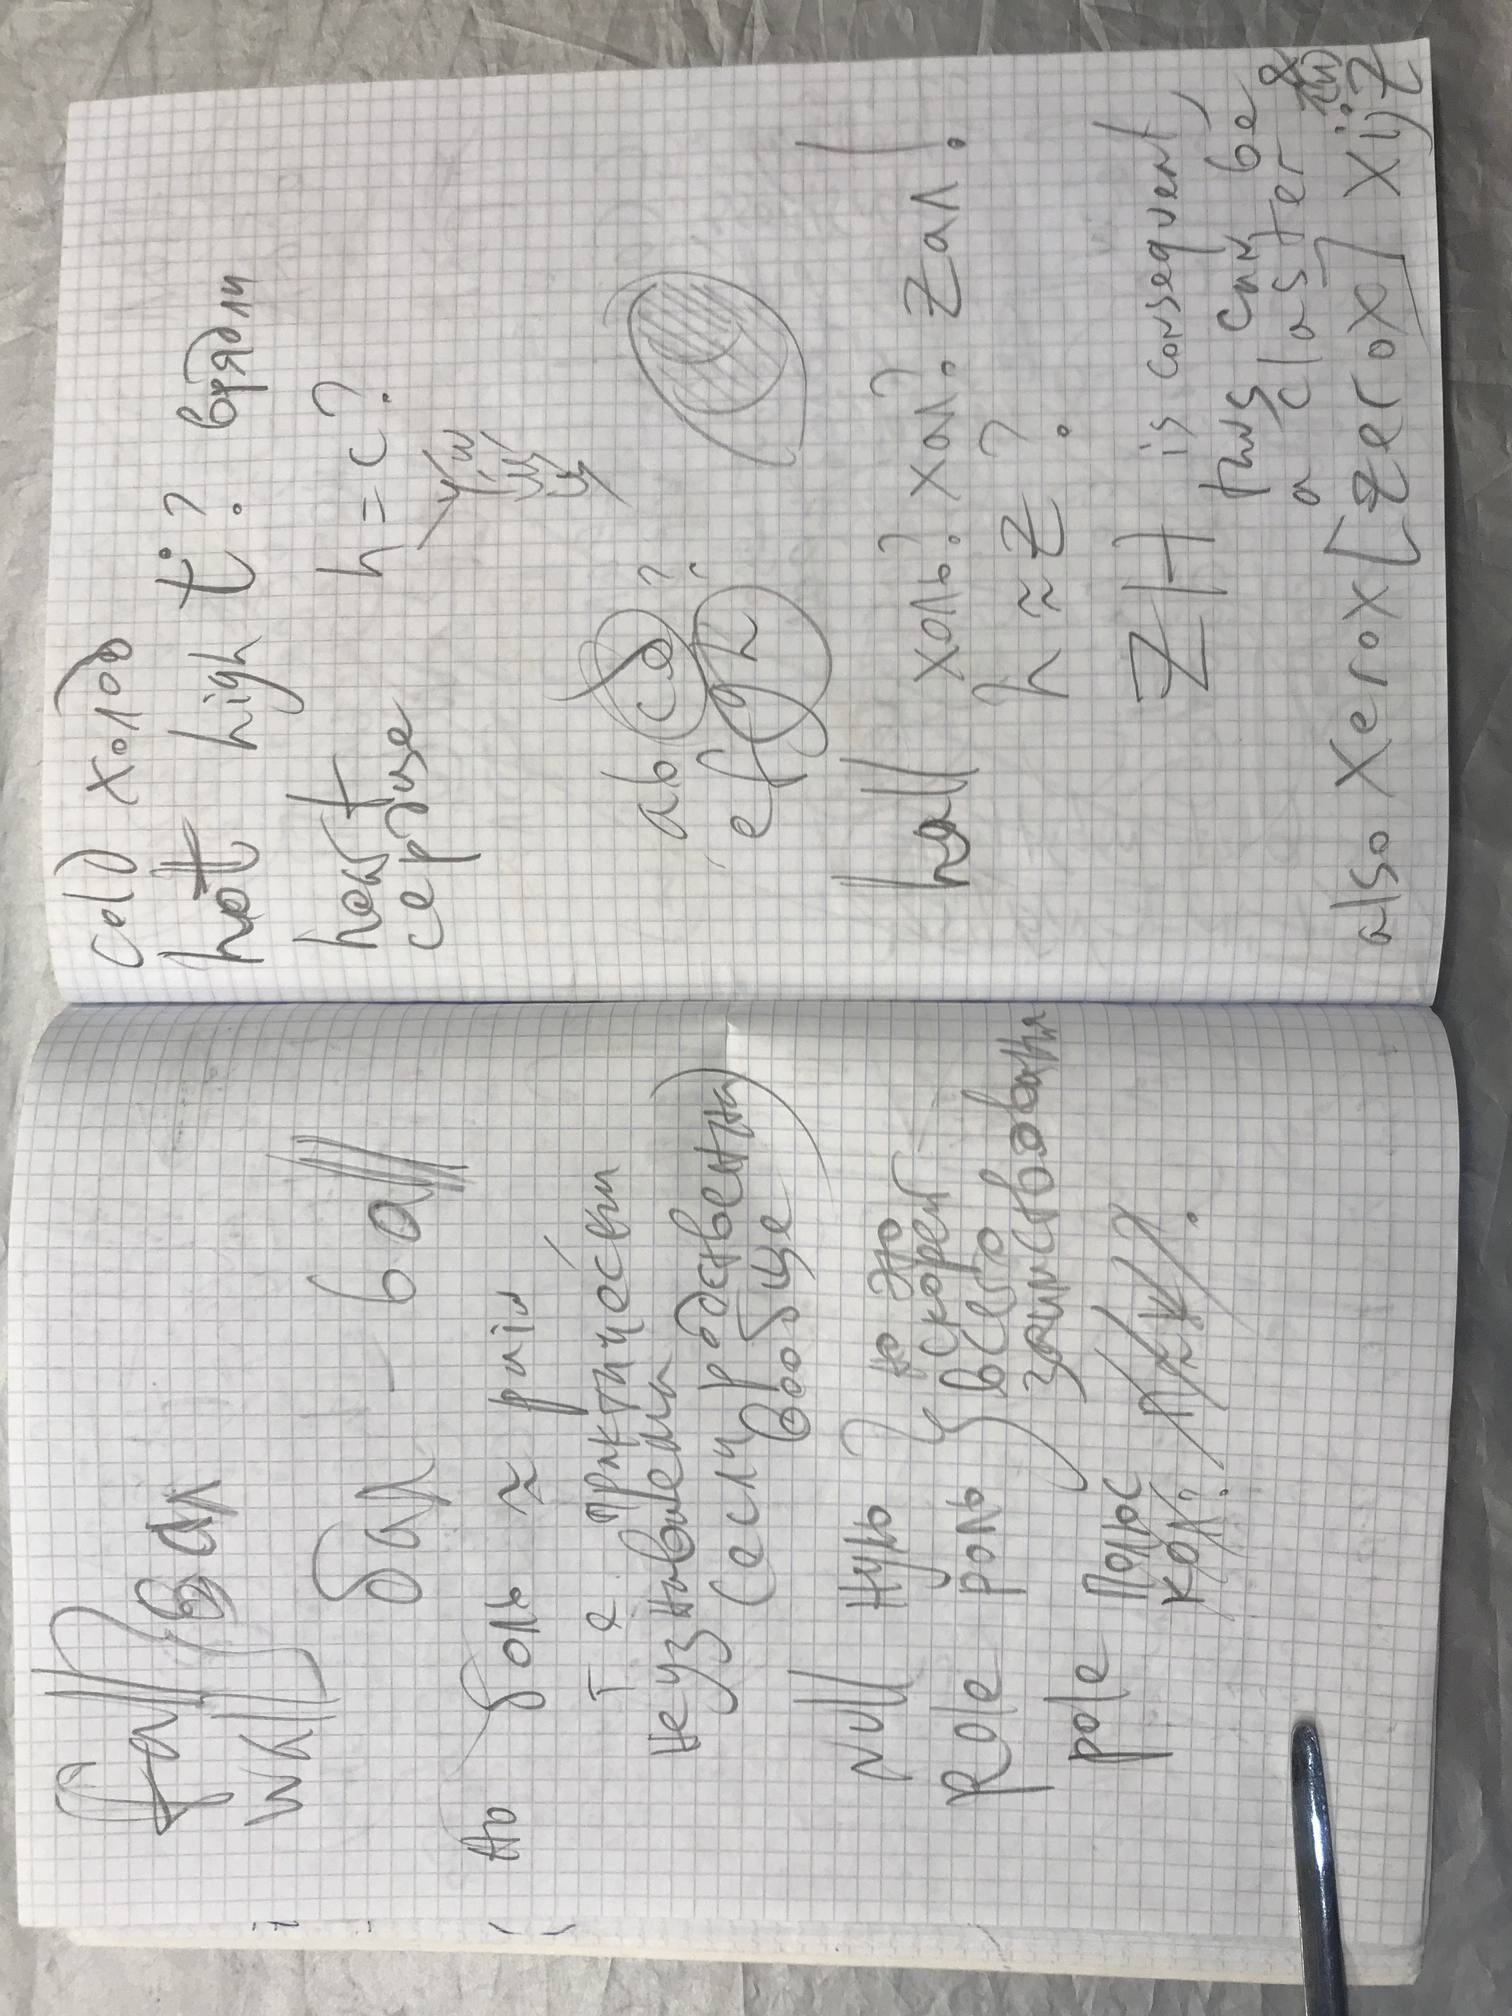 fall
wall вал
бал - ball
но боль ≈ pain
т е практически
неузнаваема
(если родственны
вообще
null нуль ? но это
Role роль скорей
всего
заимствования
pole полюс
кол?
cold холод
hot high t°? врядли
heart h = c?
сердце
abcd?
efgh
hall холь? хал? zал!
h ≈ z ?
ZH is consequent,
thus can be
a claster &
also Xerox [zerox] xijz